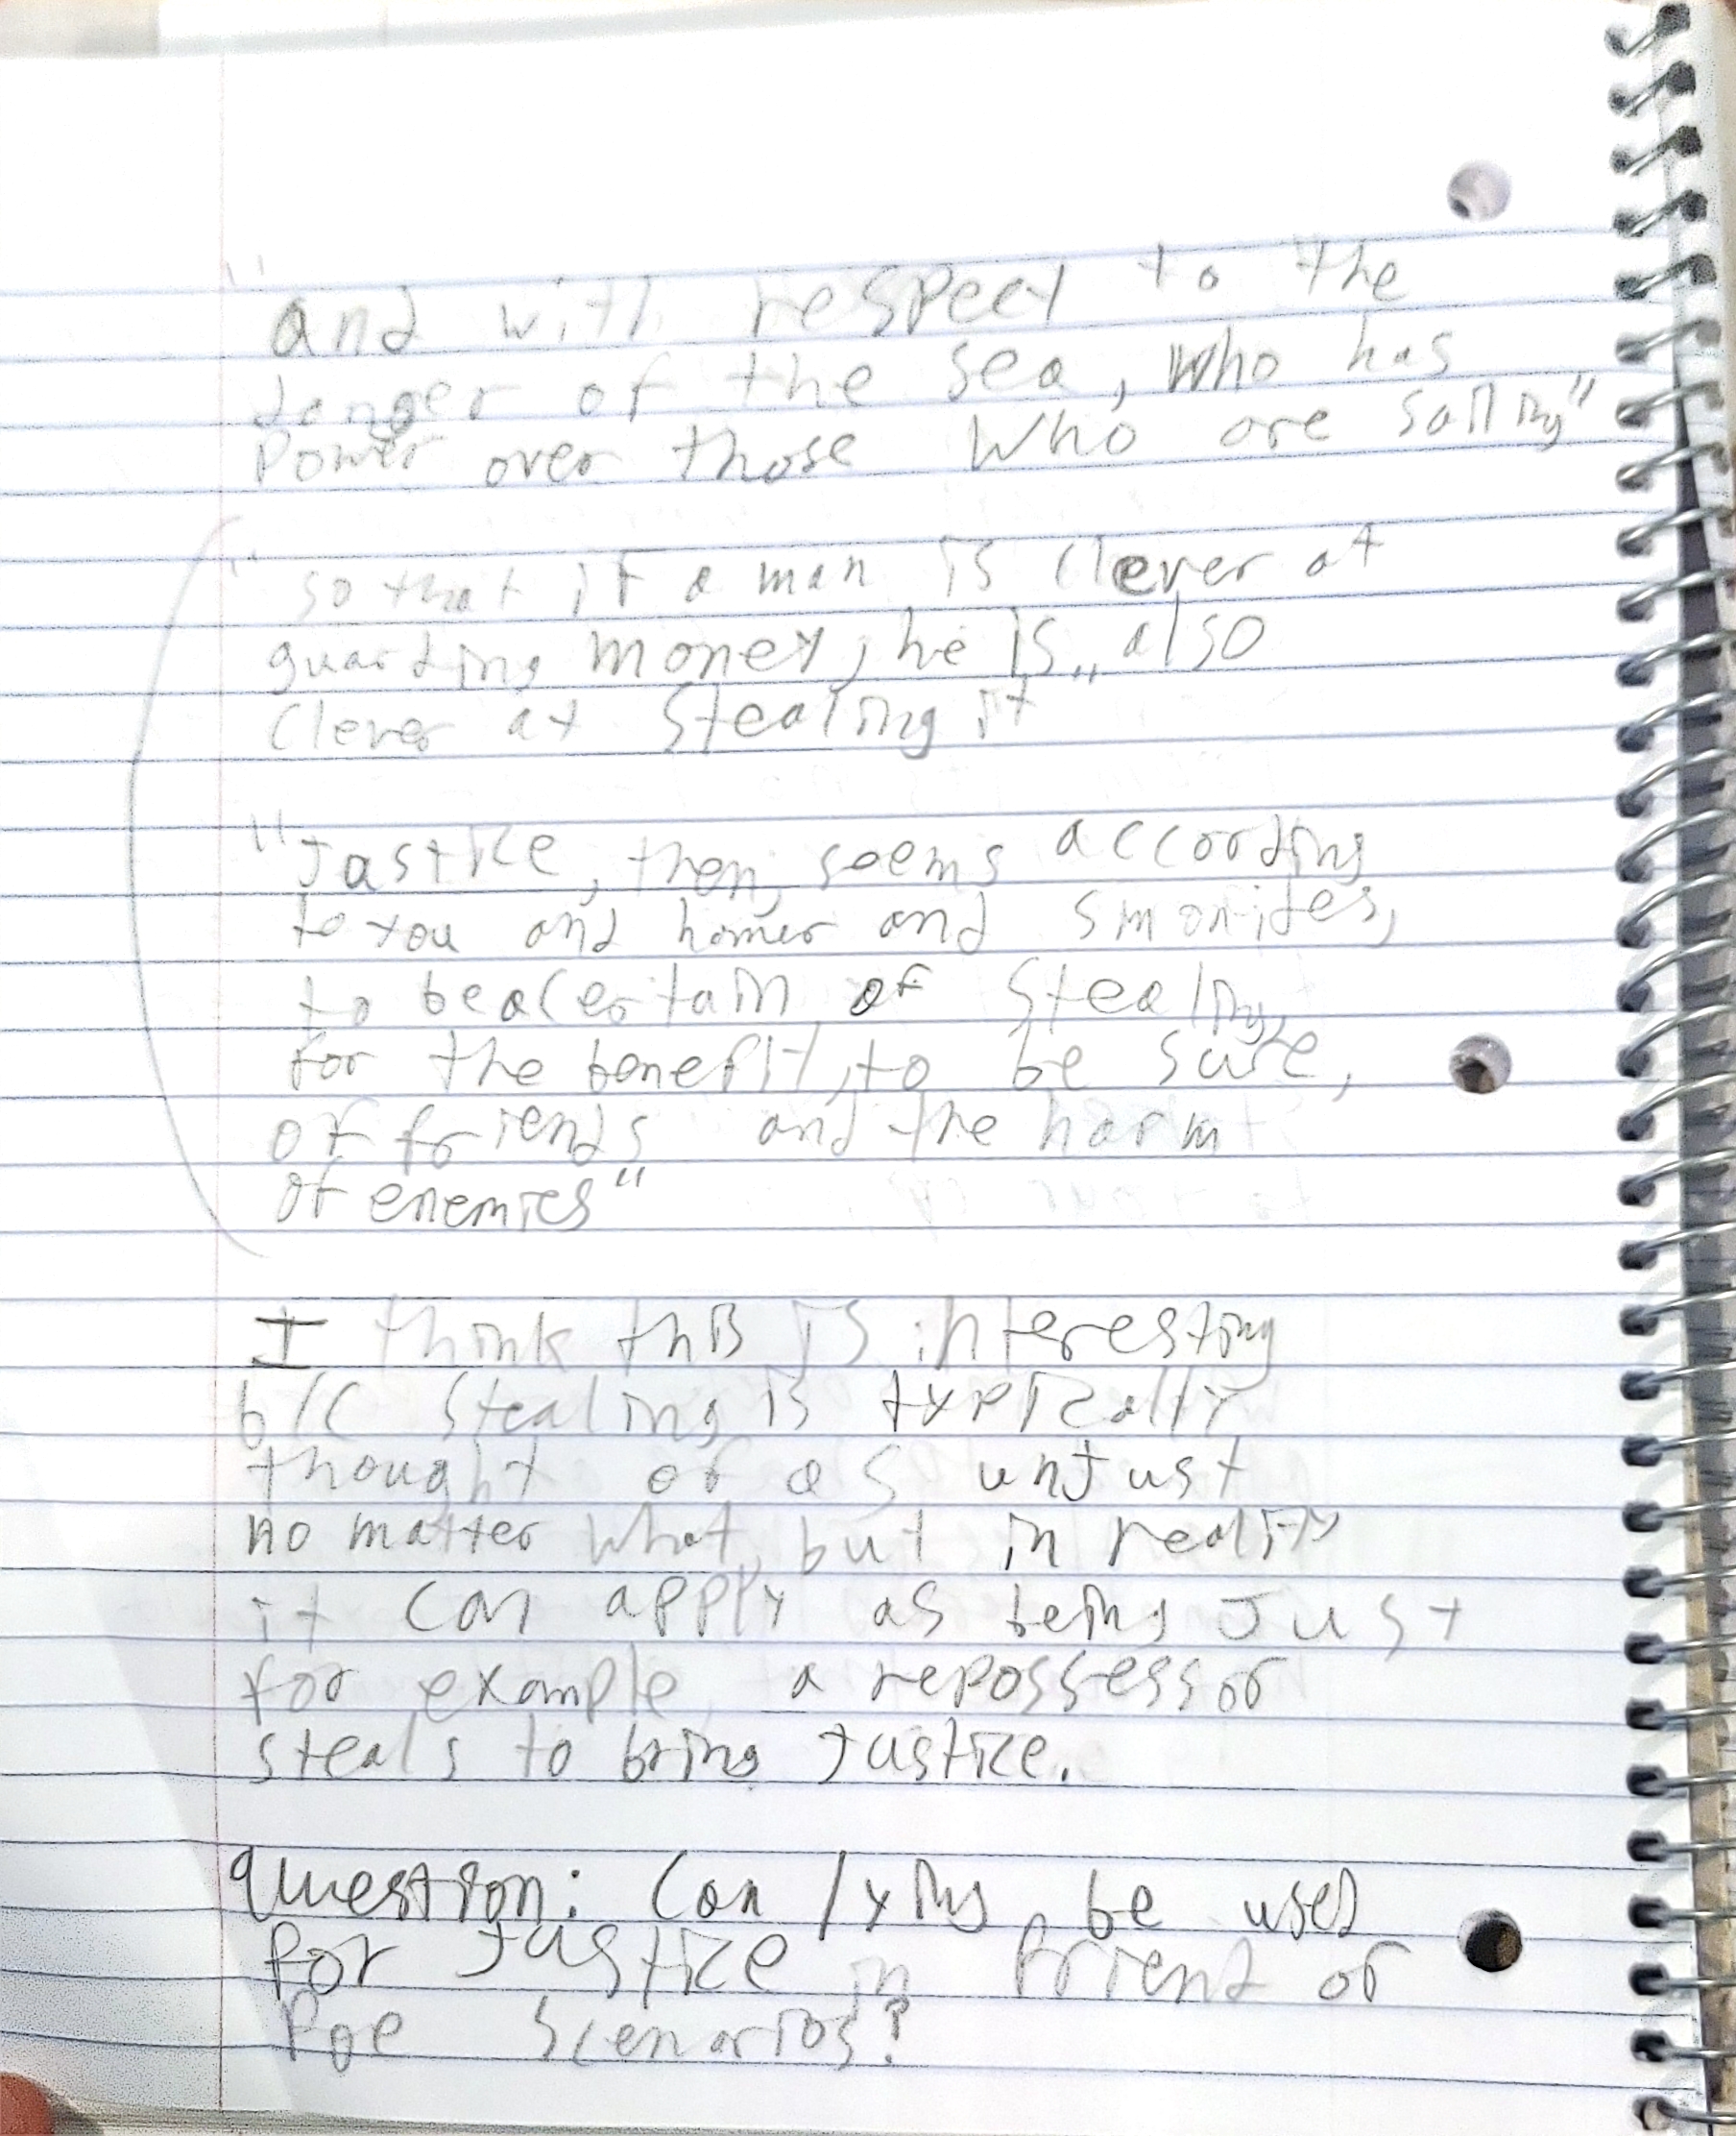 "and with respect to the
danger of the sea, who has
power over those who are sailing"
"so that if a man is clever at
guarding money, he is also
clever at stealing it"
"Justice, then, seems according
to you and homer and Smonides,
to be a certain of stealing,
for the benefit, to be sure,
of friends and the harm
of enemies"
I think this is interesting
b/c stealing is typically
thought of as unjust
no matter what, but in reality
it can apply as being Just
for example, a repossessor
steals to bring Justice.
question: Can lying be used
for Justice in friend or
foe scenarios?